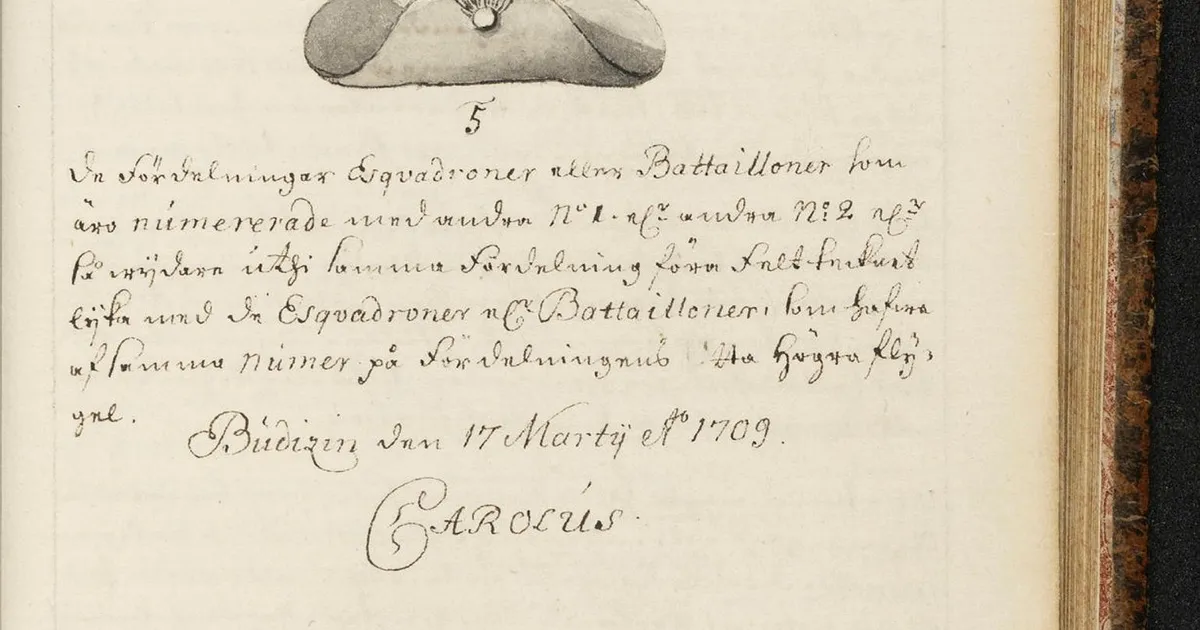 5
de Fördelningar Esqvadroner eller Battailloner som
äro númererade med andra No 1. elr andra No 2 elr
så rÿdare úthi samma Fördelning föra Felt-tecknet
lÿka med de Esqvadroner elr Battailloner, som hafwa
af samma Númer på Fördelningens Högra flÿ-
gel.
Búdizin den 17 Martÿ Ao 1709.
CAROLÚS.